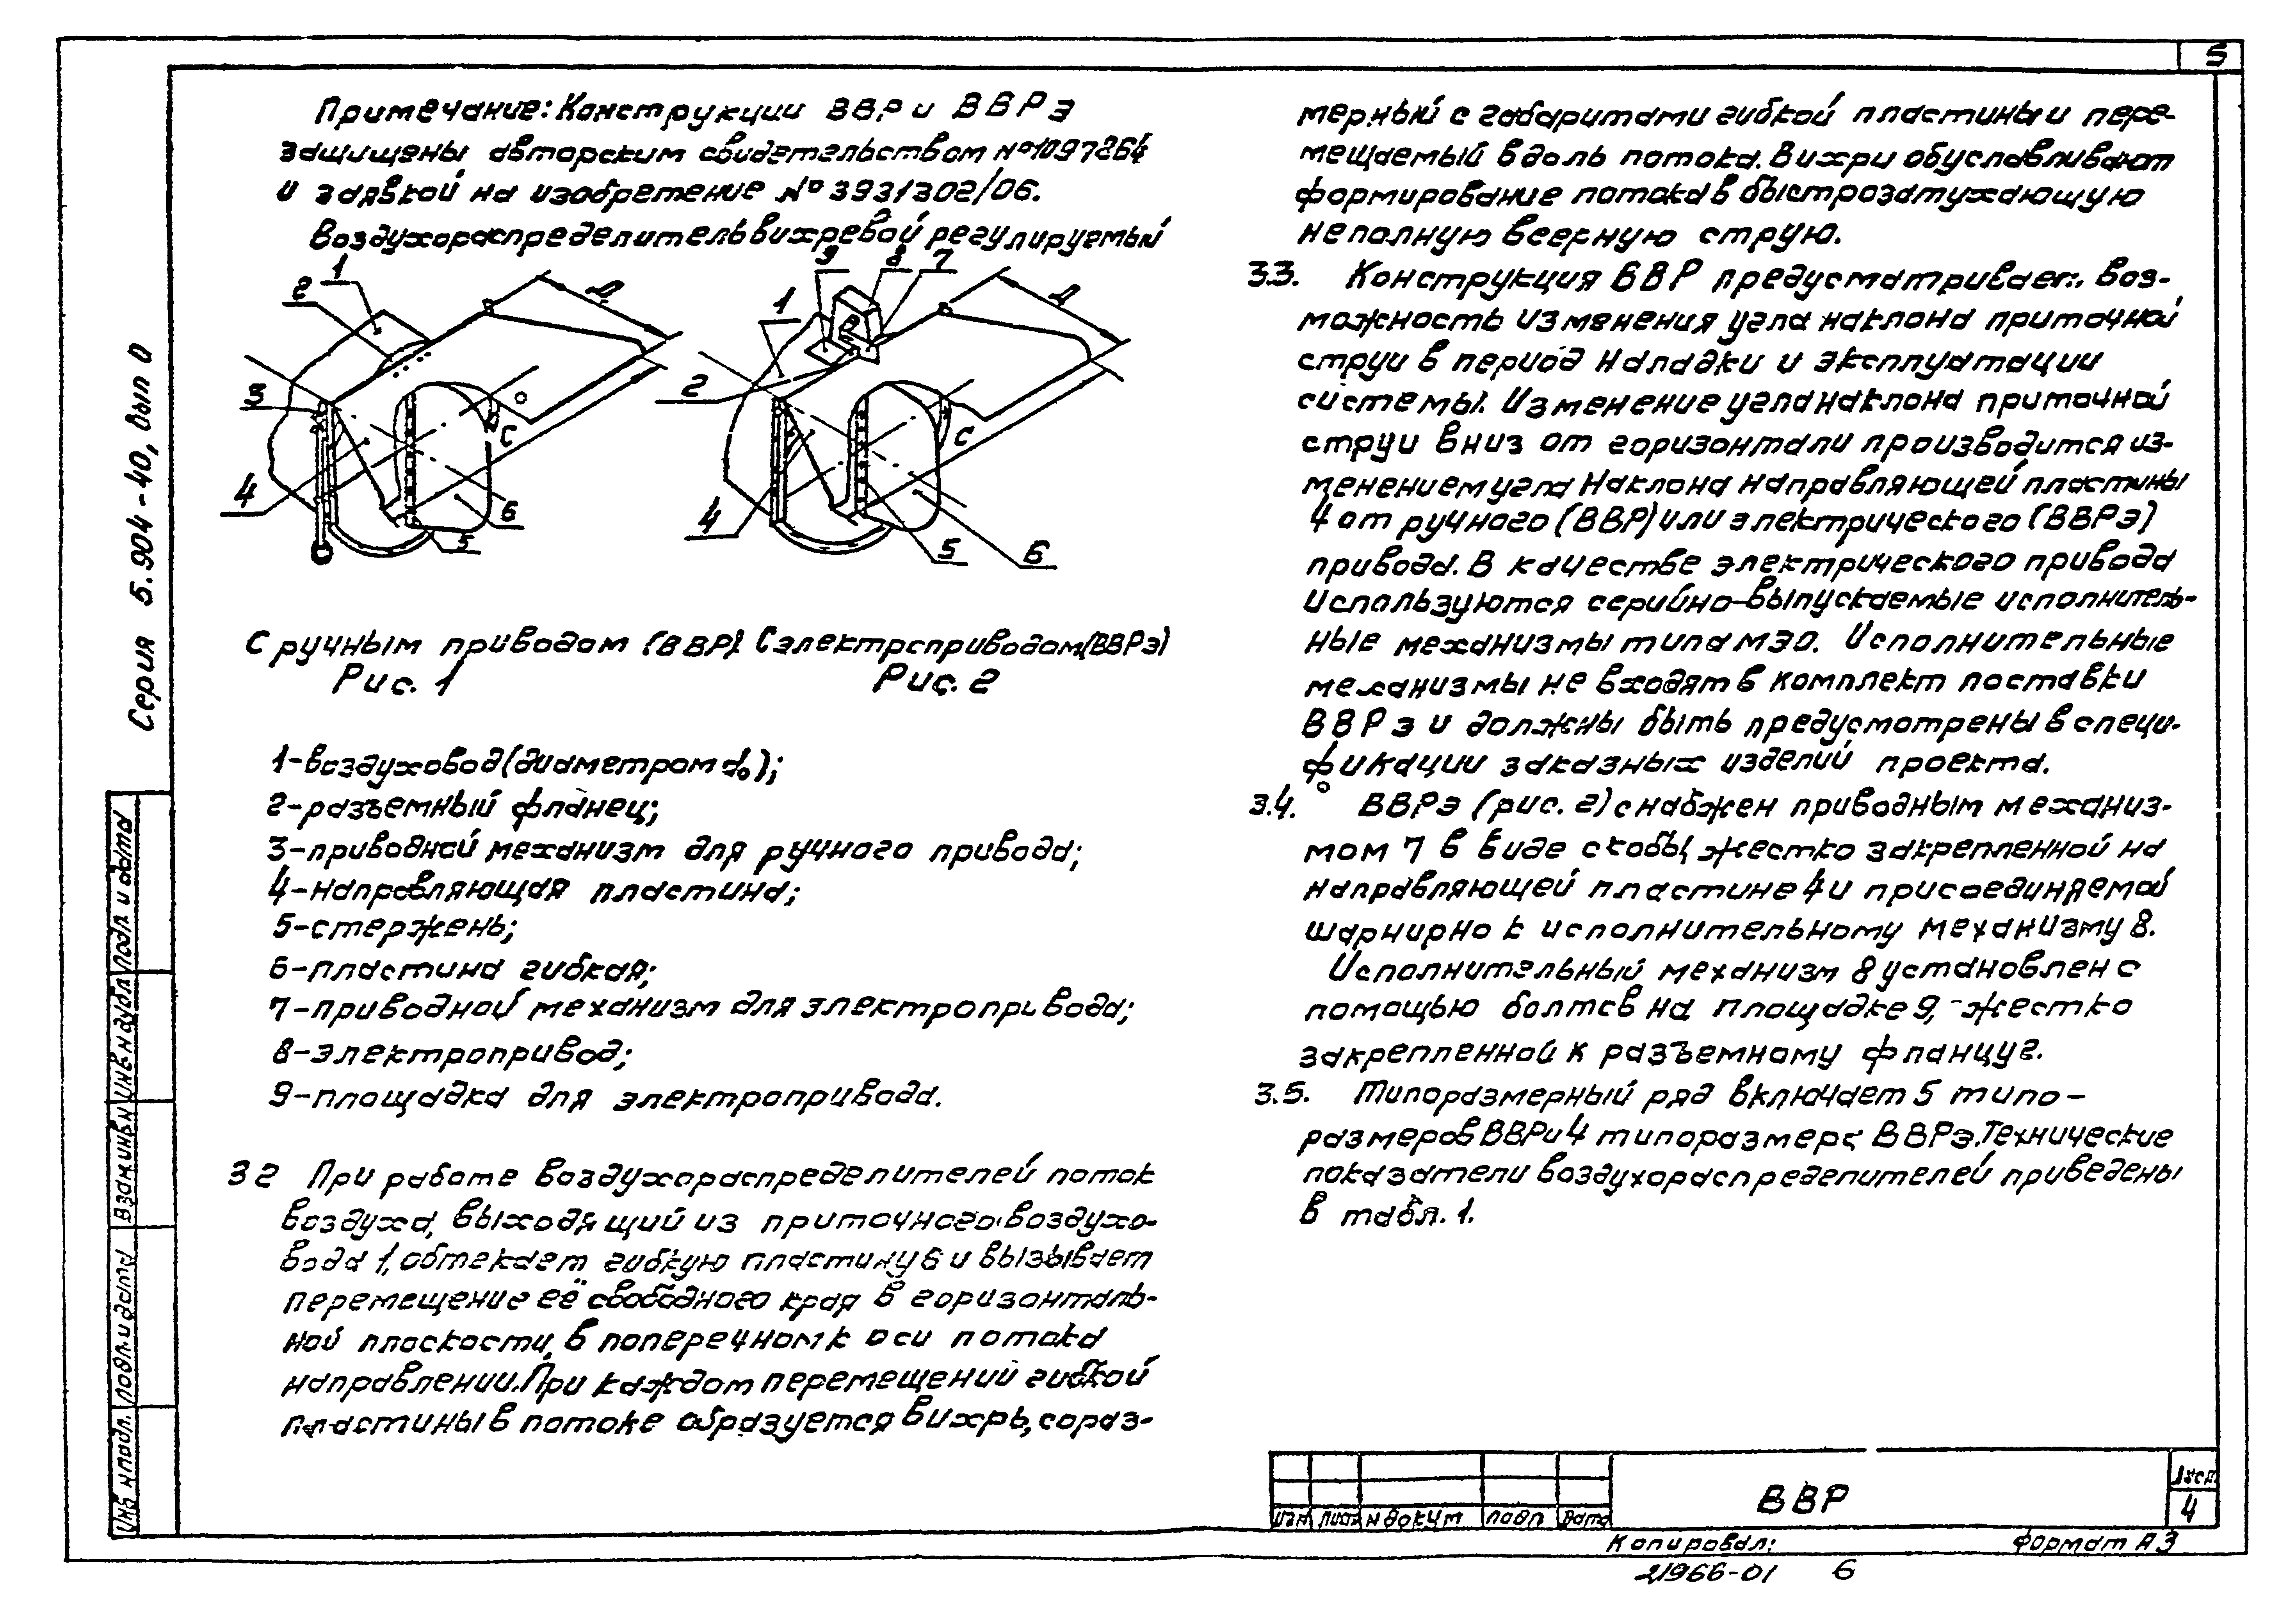 5
Примечание: Конструкции ВВР и ВВРЭ
защищены авторским свидетельством №1097864
и заявкой на изобретение №3931302/06.
Воздухораспределитель вихревой регулируемый
1
2
3
4
5
6
С
1
2
4
5
6
7
8
9
С
С ручным приводом (ВВР). С электроприводом (ВВРЭ)
Рис. 1 Рис. 2
1-воздуховод (диаметром d₀);
2-разъемный фланец;
3-приводной механизм для ручного привода;
4-направляющая пластина;
5-стержень;
6-пластина гибкая;
7-приводной механизм для электропривода;
8-электропривод;
9-площадка для электропривода.
3 2 При работе воздухораспределителей поток
воздуха, выходящий из приточного воздухо-
вода 1, обтекает гибкую пластину 6 и вызывает
перемещение её свободного края в горизонталь-
ной плоскости, в поперечном к оси потока
направлении. При каждом перемещений гибкой
пластины в потоке образуется вихрь, сораз-
мерный с габаритами гибкой пластины и пере-
мещаемый вдоль потока. Вихри обуславливают
формирование потока в быстрозатухающую
неполную веерную струю.
3.3. Конструкция ВВР предусматривает воз-
можность изменения угла наклона приточной
струи в период наладки и эксплуатации
системы. Изменение угла наклона приточной
струи вниз от горизонтали производится из-
менением угла наклона направляющей пластины
4 от ручного (ВВР) или электрического (ВВРЭ)
привода. В качестве электрического привода
используются серийно-выпускаемые исполнитель-
ные механизмы типа МЭО. Исполнительные
механизмы не входят в комплект поставки
ВВРЭ и должны быть предусмотрены в специ-
фикации заказных изделий проекта.
3.4. ВВРЭ (рис. 2) снабжен приводным механиз-
мом 7 в виде скобы, жестко закрепленной на
направляющей пластине 4 и присоединяемой
шарнирно к исполнительному механизму 8.
Исполнительный механизм 8 установлен с
помощью болтов на площадке 9, жестко
закрепленной к разъемному фланцу 2.
3.5. Типоразмерный ряд включает 5 типо-
размеров ВВР и 4 типоразмера ВВРЭ. Технические
показатели воздухораспределителей приведены
в табл. 1.
Серия 5.904-40, вып 0
Инв № подл. Подп. и дата Взам инв № Инв № дубл Подп и дата
Изм Лист № докум Подп Дата
ВВР
Лист
4
Копировал: Формат А3
21966-01 6